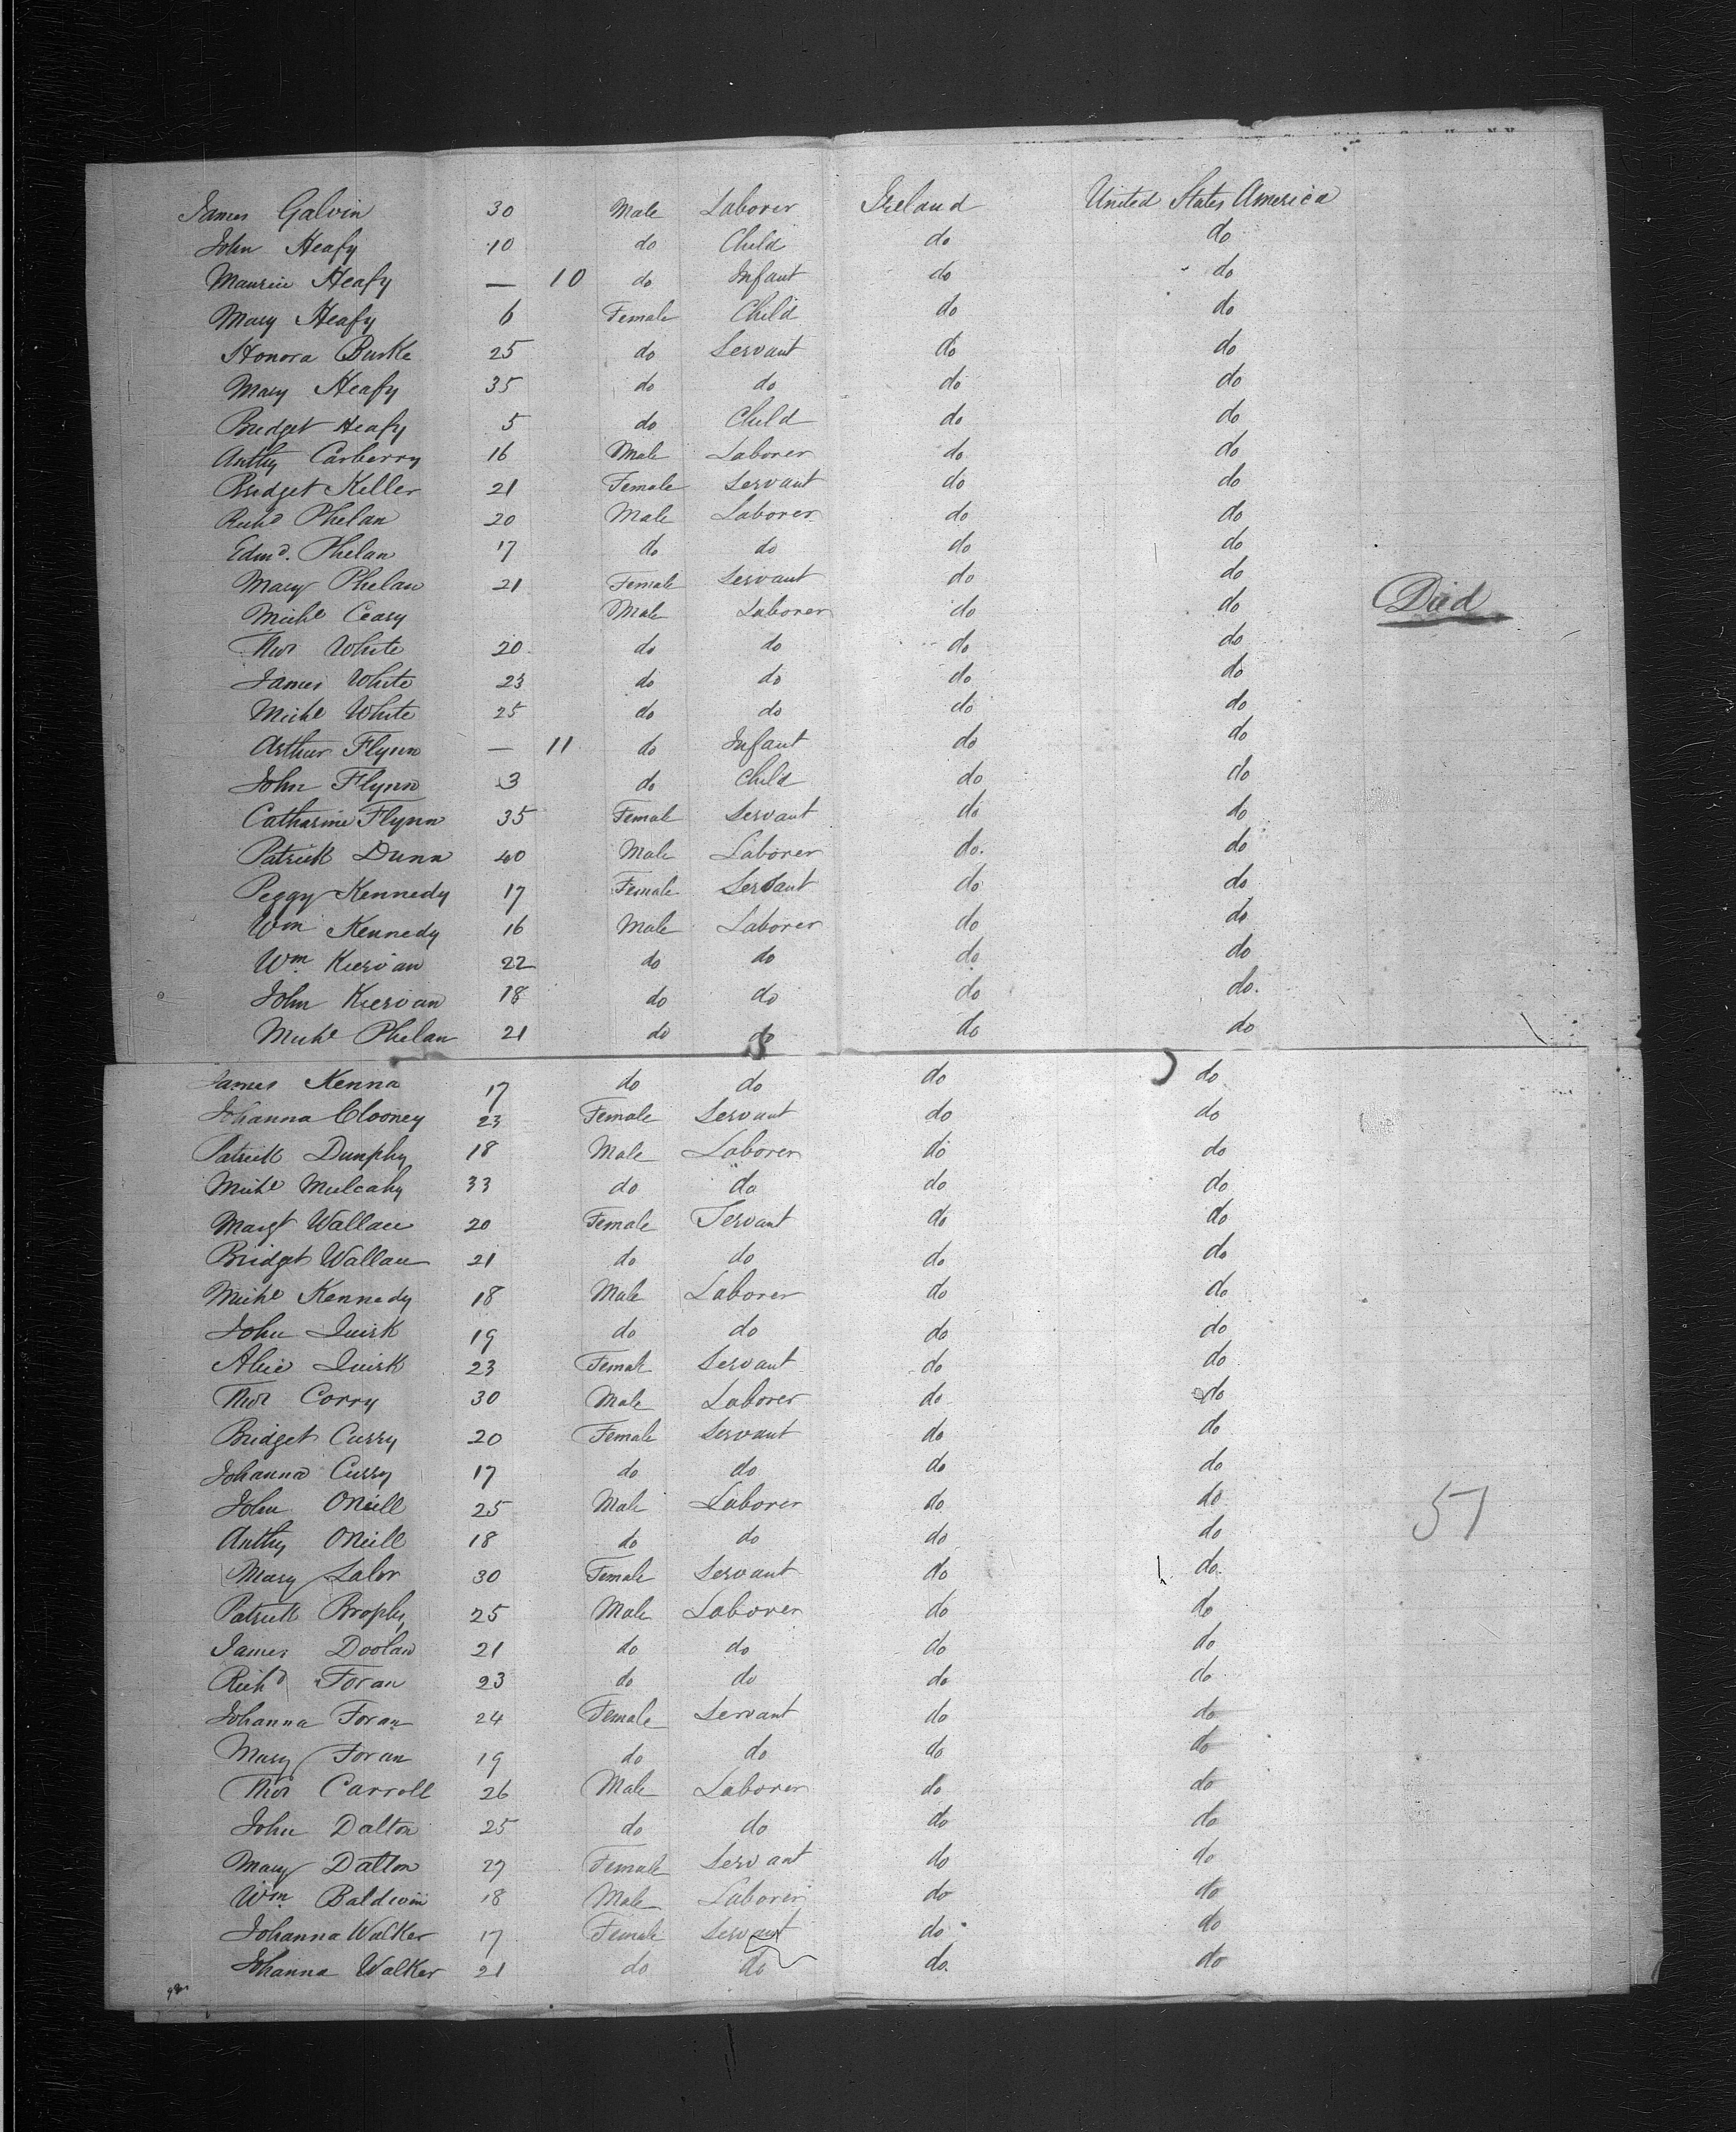 James Galvin 30 Male Laborer Ireland United States America
John Heafy 10 do Child do do
Maurice Heafy — 10 do Infant do do
Mary Heafy 6 Female Child do do
Honora Burke 25 do Servant do do
Mary Heafy 35 do do do do
Bridget Heafy 5 do Child do do
Anthy Carberry 16 Male Laborer do do
Bridget Keller 21 Female Servant do do
Richd Phelan 20 Male Laborer do do
Edmd. Phelan 17 do do do do
Mary Phelan 21 Female Servant do do
Michl Ceasy Male Laborer do do Died
Thos White 20 do do do do
James White 23 do do do do
Michl White 25 do do do do
Arthur Flynn — 11 do Infant do do
John Flynn 3 do Child do do
Catharine Flynn 35 Female Servant do do
Patrick Dunn 40 Male Laborer do. do
Peggy Kennedy 17 Female Servant do do
Wm Kennedy 16 Male Laborer do do
Wm. Kiervan 22 do do do do
John Kiervan 18 do do do do.
Michl Phelan 21 do do do do
James Kenna 17 do do do do
Johanna Clooney 23 Female Servant do do
Patrick Dunphy 18 Male Laborer do do
Michl Mulcahy 33 do do do do
Margt Wallace 20 Female Servant do do
Bridget Wallace 21 do do do do
Michl Kennedy 18 Male Laborer do do
John Quirk 19 do do do do
Alice Quirk 23 Female Servant do do
Thos Corry 30 Male Laborer do do
Bridget Curry 20 Female Servant do do
Johanna Curry 17 do do do do
John ONeill 25 Male Laborer do do
51
Anthy ONeill 18 do do do do
Mary Lalor 30 Female Servant do do.
Patrick Brophy 25 Male Laborer do do
James Doolan 21 do do do do
Richd Foran 23 do do do do
Johanna Foran 24 Female Servant do do
Mary Foran 19 do do do do
Thos Carroll 26 Male Laborer do do
John Dalton 25 do do do do
Mary Dalton 27 Female Servant do do
Wm. Baldwin 18 Male Laborer do do
Johanna Walker 17 Female Servant do do
Johanna Walker 21 do do do. do